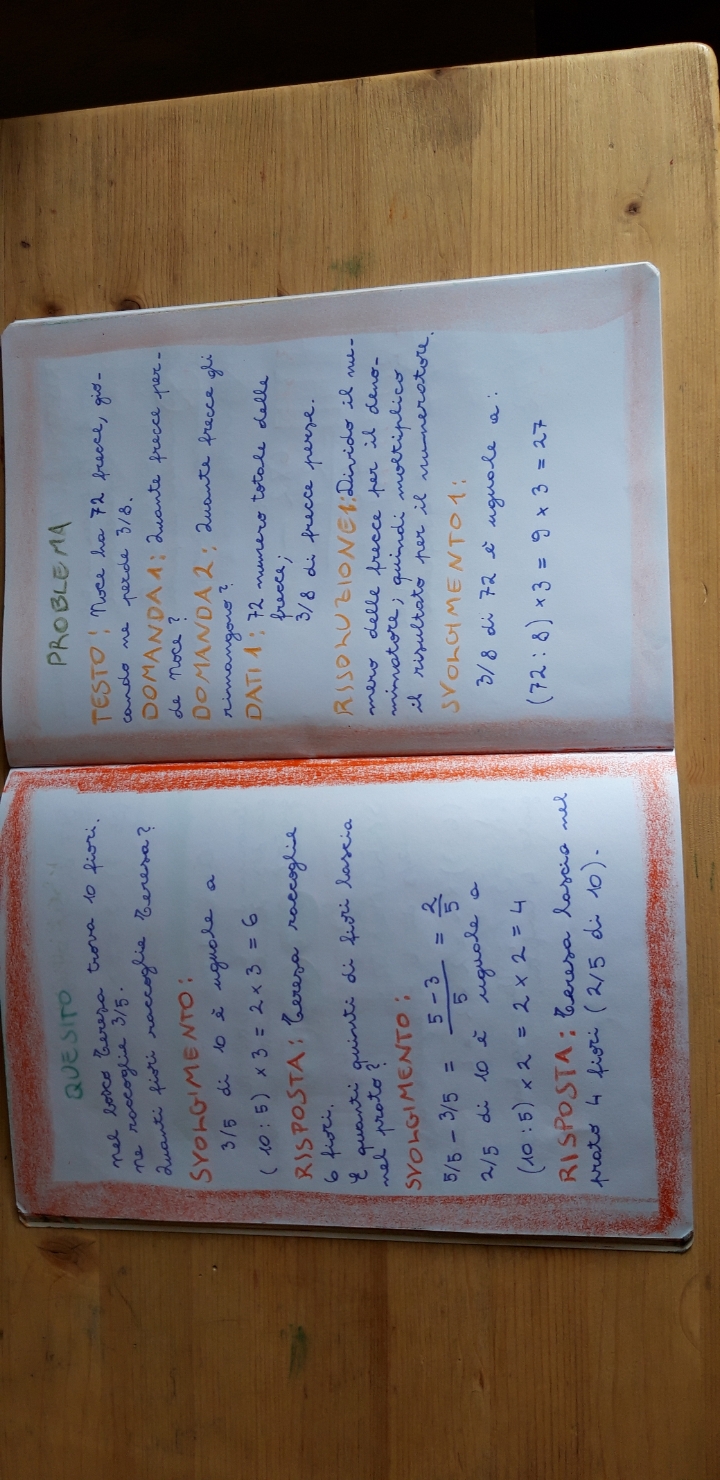 QUESITO
nel bosco Teresa trova 10 fiori.
ne raccoglie 3/5.
Quanti fiori raccoglie Teresa?
SVOLGIMENTO:
3/5 di 10 è uguale a
(10 : 5) × 3 = 2 × 3 = 6
RISPOSTA: Teresa raccoglie
6 fiori.
E quanti quinti di fiori lascia
nel prato?
SVOLGIMENTO:
5/5 - 3/5 = 5-3/5 = 2/5
2/5 di 10 è uguale a
(10 : 5) × 2 = 2 × 2 = 4
RISPOSTA: Teresa lascia nel
prato 4 fiori (2/5 di 10).
PROBLEMA
TESTO: Noce ha 72 frecce, gio-
cando ne perde 3/8.
DOMANDA 1: Quante frecce per-
de Noce?
DOMANDA 2: Quante frecce gli
rimangono?
DATI 1: 72 numero totale delle
frecce;
3/8 di frecce perse.
RISOLUZIONE 1: Divido il nu-
mero delle frecce per il deno-
minatore, quindi moltiplico
il risultato per il numeratore.
SVOLGIMENTO 1:
3/8 di 72 è uguale a:
(72 : 8) × 3 = 9 × 3 = 27